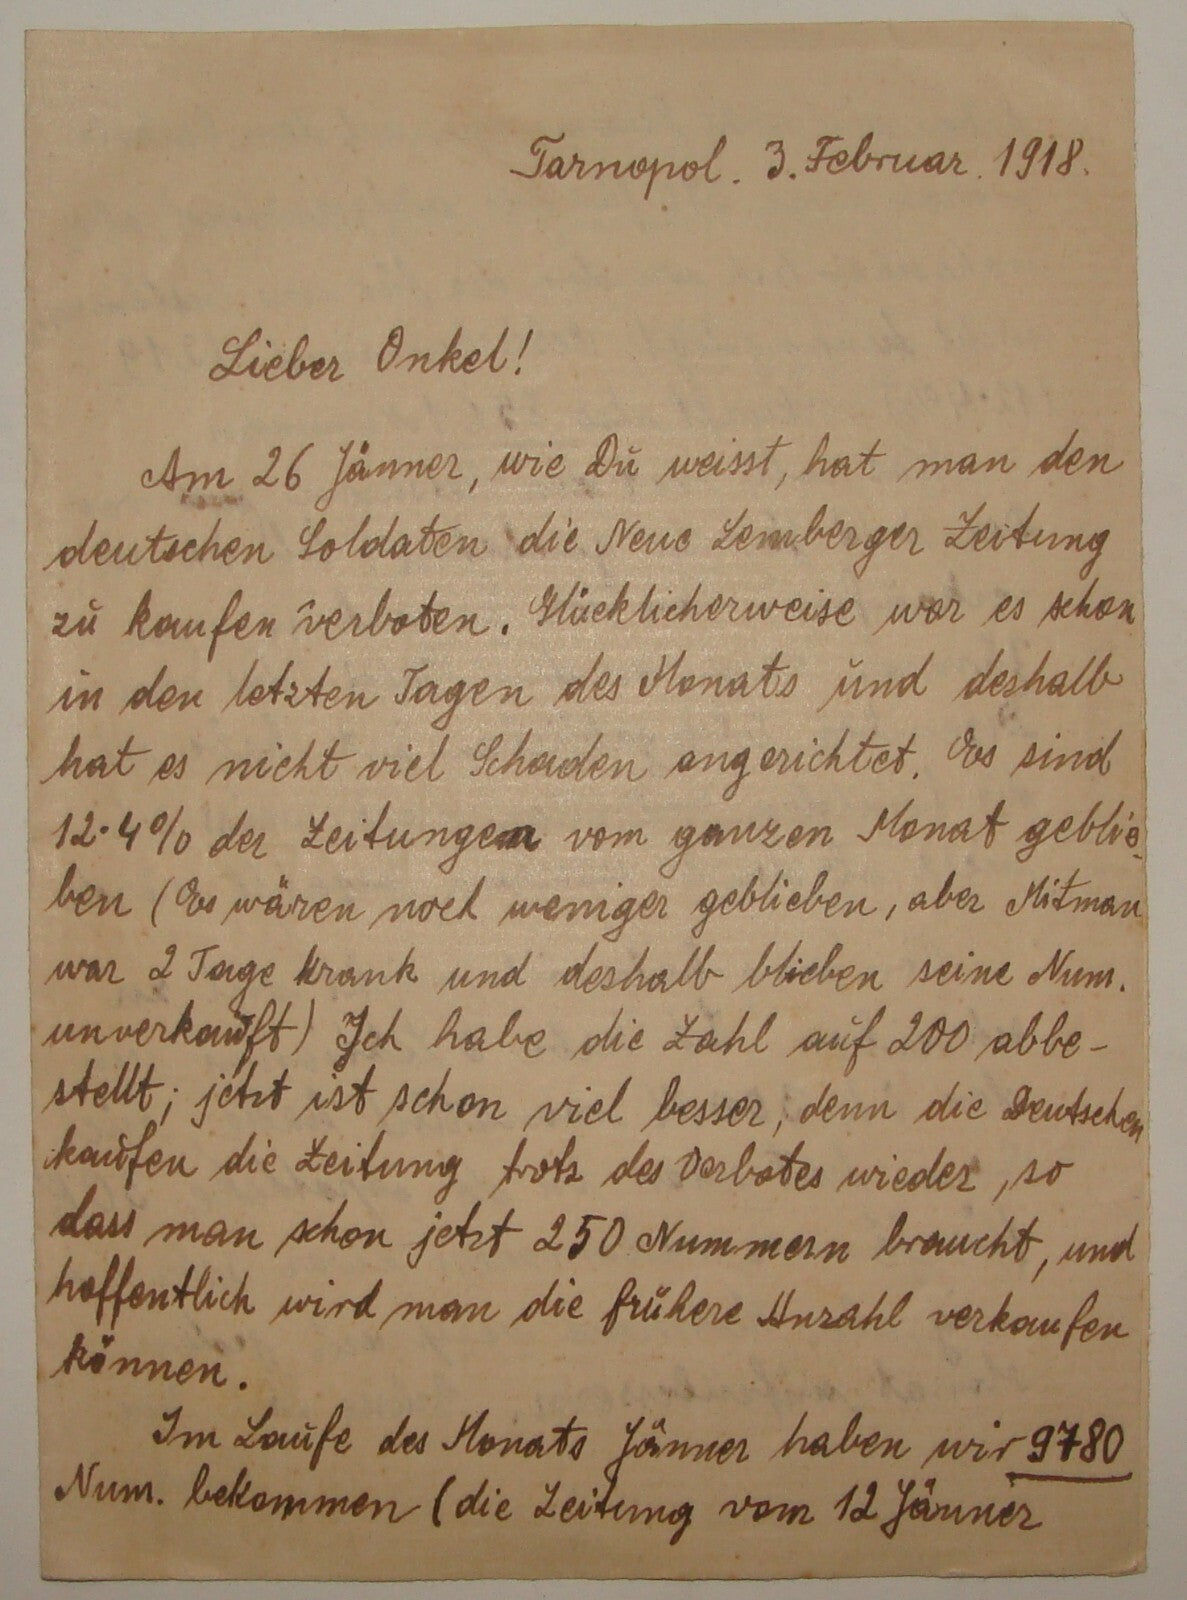 Tarnopol. 3. Februar. 1918.
Lieber Onkel!
Am 26 Jänner, wie Du weisst, hat man den
deutschen Soldaten die Neue Lemberger Zeitung
zu kaufen verboten. Glücklicherweise war es schon
in den letzten Tagen des Monats und deshalb
hat es nicht viel Schaden angerichtet. Es sind
12·4% der Zeitungen vom ganzen Monat geblie-
ben (Es wären noch weniger geblieben, aber Mitman
war 2 Tage krank und deshalb blieben seine Num.
unverkauft) Ich habe die Zahl auf 200 abbe-
stellt; jetzt ist schon viel besser, denn die Deutschen
kaufen die Zeitung trotz des Verbotes wieder, so
dass man schon jetzt 250 Nummern braucht, und
hoffentlich wird man die frühere Anzahl verkaufen
können.
Im Laufe des Monats Jänner haben wir 9780
Num. bekommen (die Zeitung vom 12 Jänner